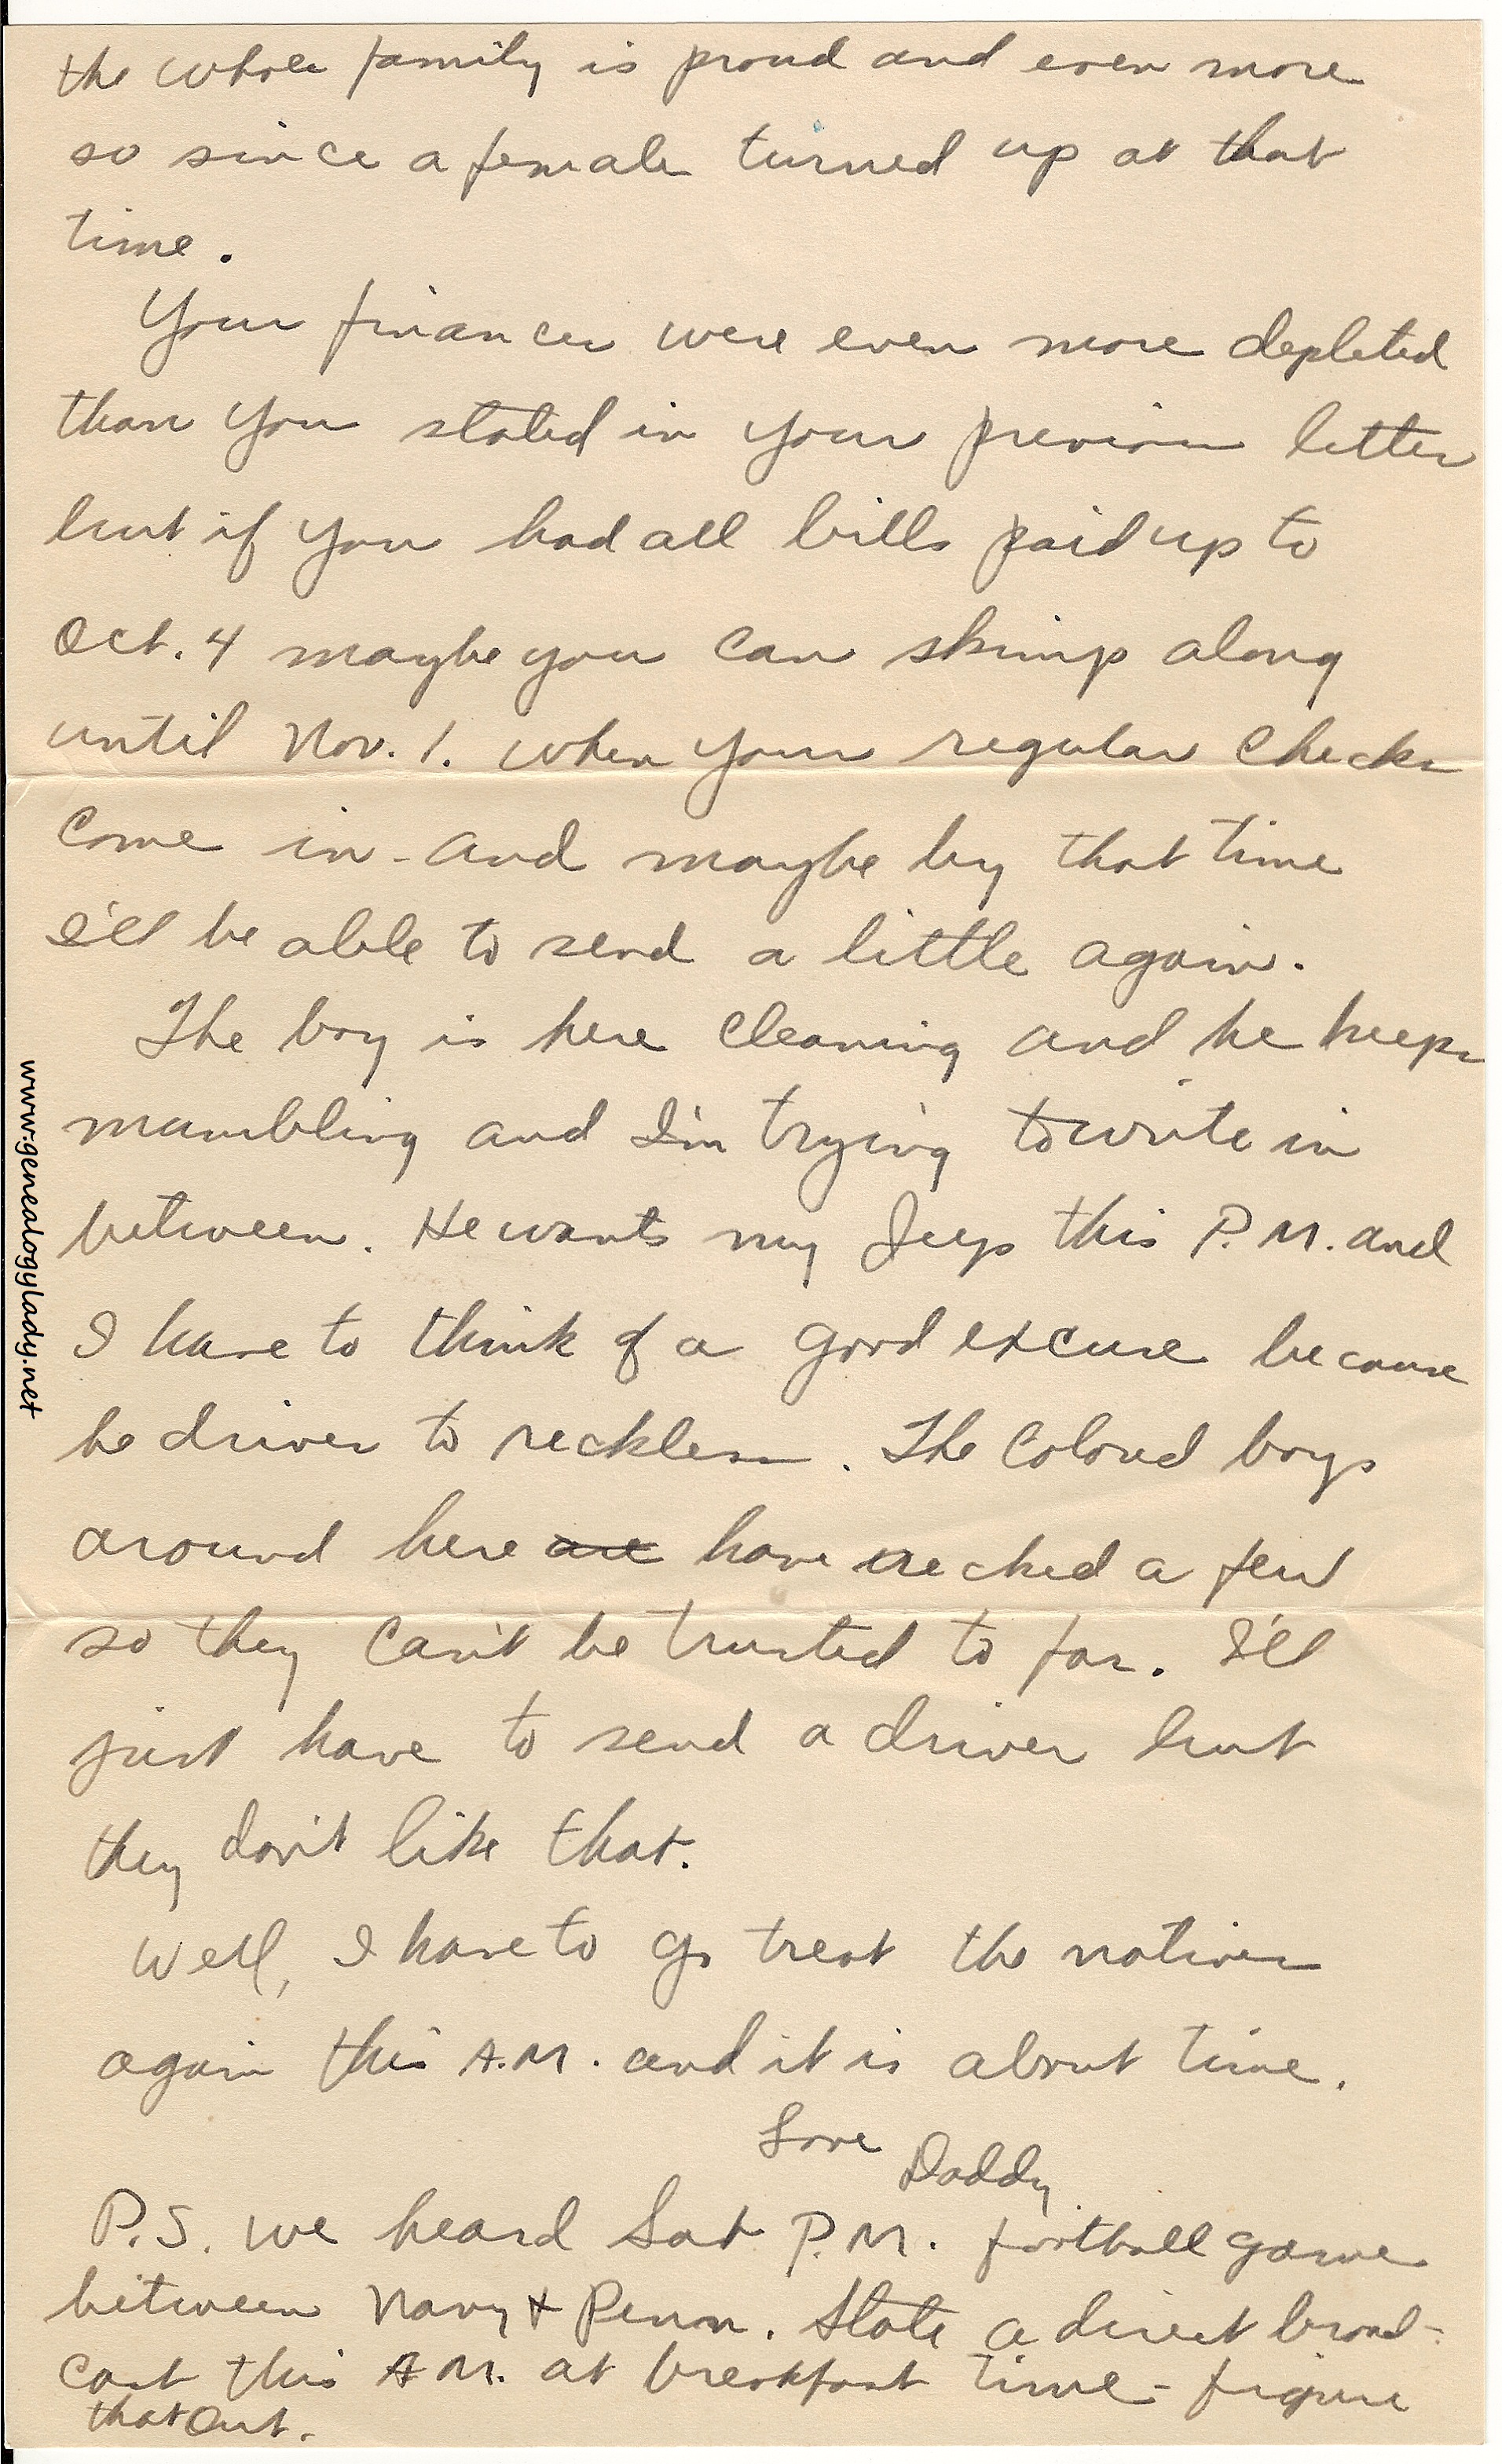 the whole family is proud and even more
so since a female turned up at that
time.
Your finances were even more depleted
than you stated in your previous letter
but if you had all bills paid up to
Oct. 4 maybe you can skimp along
until Nov. 1. when your regular checks
come in - and maybe by that time
I'll be able to send a little again.
The boy is here cleaning and he keeps
mumbling and I'm trying to write in
between. He wants my Jeep this P.M. and
I have to think of a good excuse because
he drives to reckless. The Colored boys
around here are have wrecked a few
so they can't be trusted to far. I'll
just have to send a driver but
they don't like that.
Well, I have to go treat the natives
again this A.M. and it is about time.
Love Daddy.
P.S. We heard Sat P.M. football game
between Navy & Penn. State a direct broad-
cast this A.M. at breakfast time - figure
that out.
www.genealogylady.net